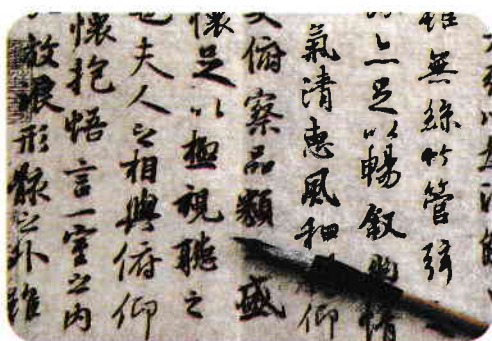 無絲竹管弦
亦足以暢敘幽情
氣清惠風和仰
俯察品類盛
懷足以極視聽之
也夫人之相與俯仰
懷抱悟言一室之內
放浪形骸之外雖